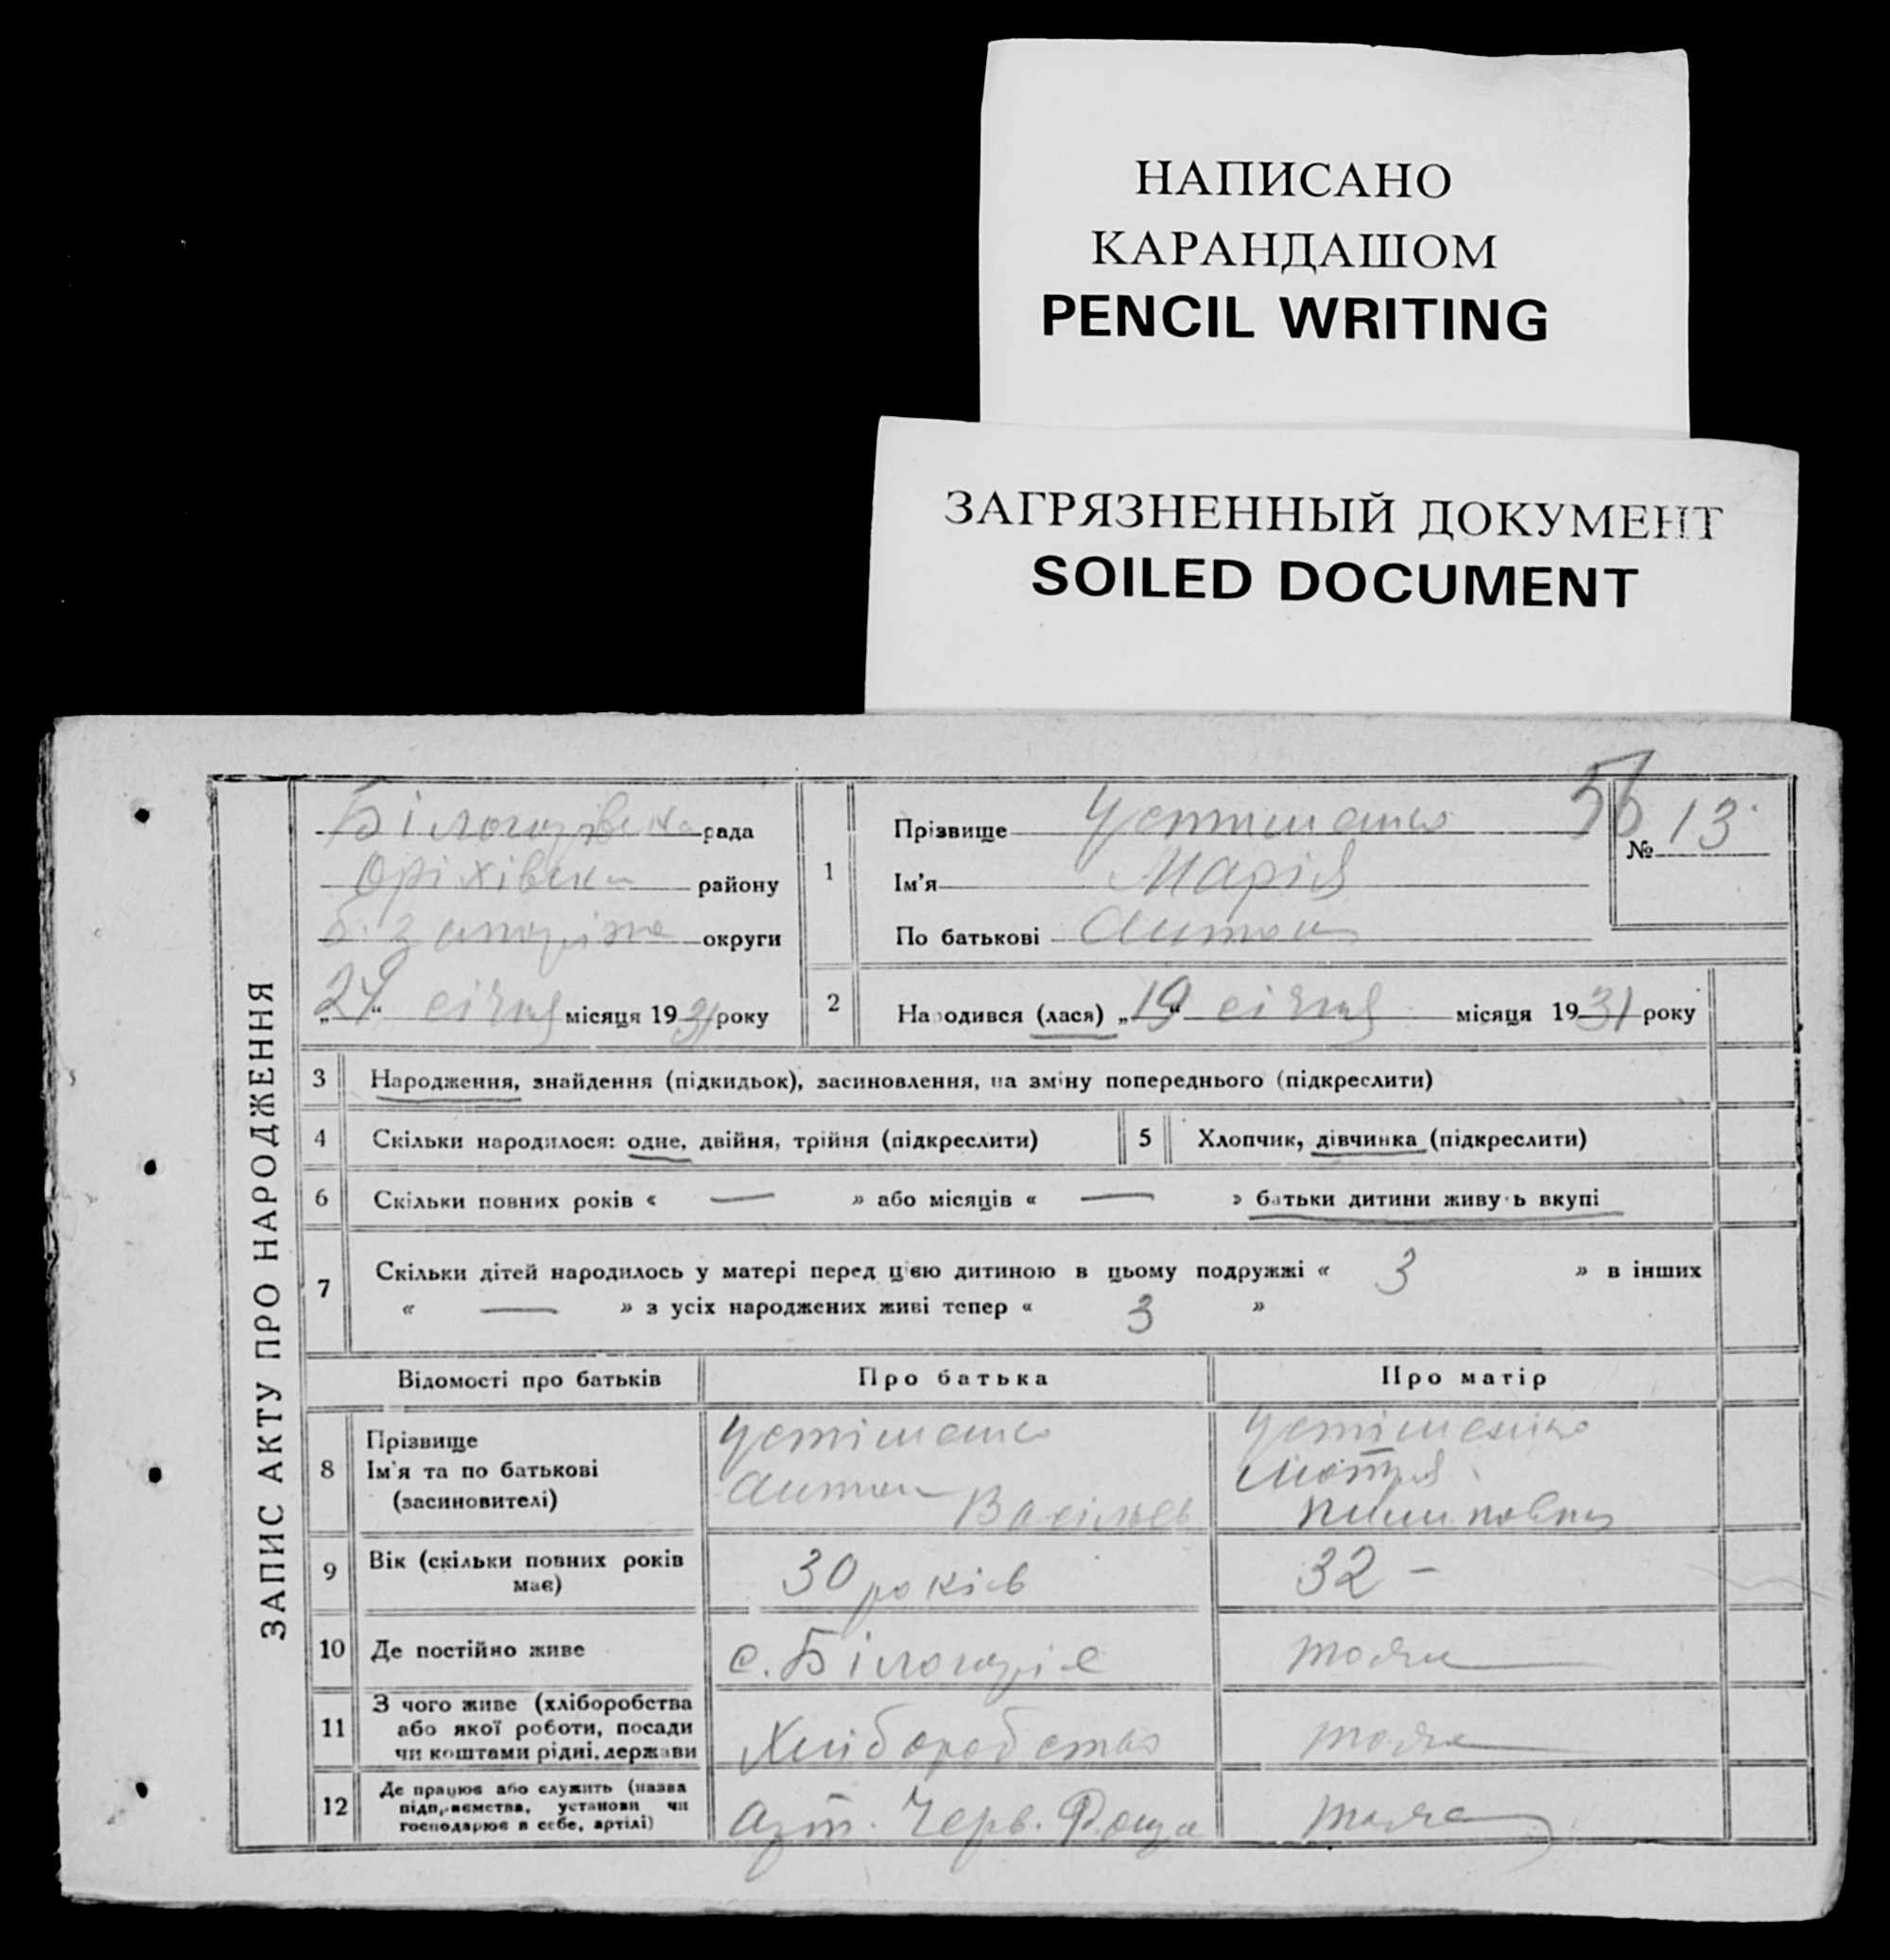 НАПИСАНО
КАРАНДАШОМ
PENCIL WRITING
ЗАГРЯЗНЕННЫЙ ДОКУМЕНТ
SOILED DOCUMENT
ЗАПИС АКТУ ПРО НАРОДЖЕННЯ
рада
району
округи
січня місяця 1931 року
56
№ 13
1 Прізвище
Ім'я Марія
По батькові Антон
2 Народився (лася) „19“ січня місяця 1931 року
3 Народження, знайдення (підкидьок), засиновлення, на зміну попереднього (підкреслити)
4 Скільки народилося: одне, двійня, трійня (підкреслити)
5 Хлопчик, дівчинка (підкреслити)
6 Скільки повних років « — » або місяців « — » батьки дитини живуть вкупі
7 Скільки дітей народилось у матері перед цією дитиною в цьому подружжі « 3 » в інших
« — » з усіх народжених живі тепер « 3 »
Відомості про батьків Про батька Про матір
8 Прізвище
Ім'я та по батькові
(засиновителі)
Антон
Мотря
9 Вік (скільки повних років
має)
30 років
32 –
10 Де постійно живе
с. Білогоріє
тоже
11 З чого живе (хліборобства
або якої роботи, посади
чи коштами рідні, держави
Хліборобство
тоже
12 Де працює або служить (назва
підприємства, установи чи
господарює в себе, артілі)
Арт. Черв.
тоже